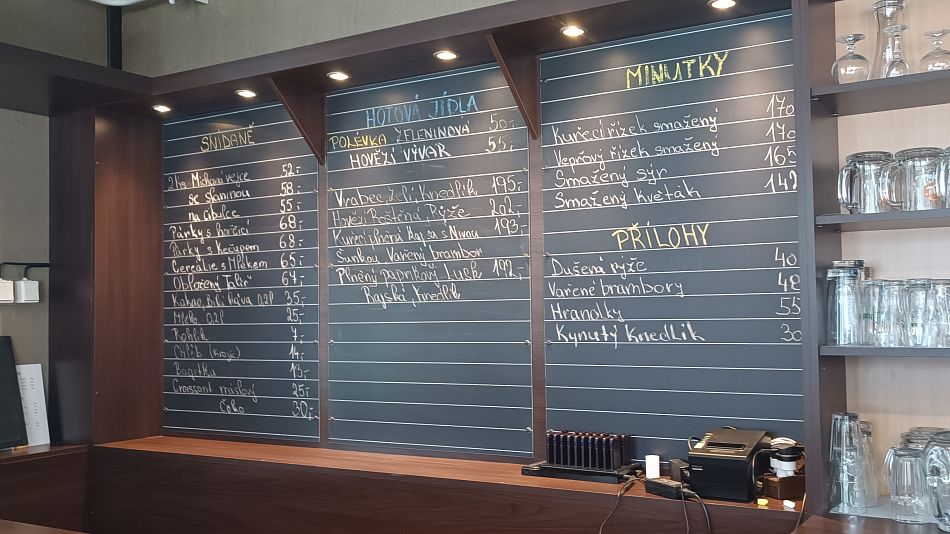 SNIDANĚ
2 ks Míchaná vejce 52,-
se slaninou 58,-
na cibulce 55,-
Párky s hořčicí 68,-
Párky s kečupem 68,-
Cereálie s Mlékem 65,-
Obložený talíř 64,-
Kakao Bílá káva 0.2l 35,-
Mléko 0.2l 25,-
Rohlík 7,-
Chléb (Krajíc) 14,-
Bagetka 13,-
Croissant máslový 25,-
Čoko 30,-
HOTOVÁ JÍDLA
POLÉVKA ZELENINOVÁ 50,-
HOVĚZÍ VÝVAR 55,-
Vrabec, Zelí, Knedlík 195,-
Hovězí Roštěná, Rýže 202,-
Kuřecí plněná sa s Nivou 193,-
Šunkou Vařený brambor
Plněný paprikový Lusk 192,-
Rajská, Knedlík
MINUTKY
Kuřecí řízek smažený 170
Vepřový řízek smažený 170
Smažený sýr 165
Smažený Květák 149
PŘÍLOHY
Dušená rýže 40
Vařené brambory 48
Hranolky 55
Kynutý Knedlík 30